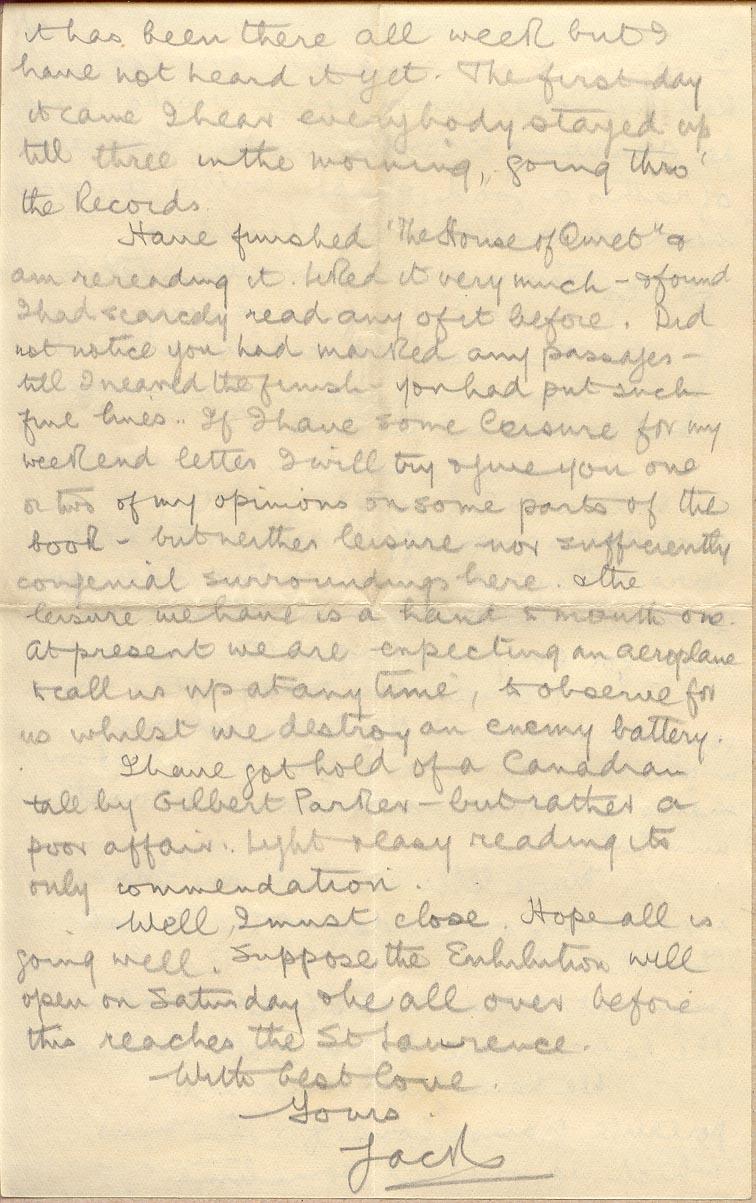 it has been there all week but I
have not heard it yet. The first day
it came I hear everybody stayed up
till three in the morning, going thro'
the Records.
Have finished "The House of Quiet" &
am rereading it. Liked it very much - & found
I had scarcely read any of it before. Did
not notice you had marked any passages -
till I neared the finish - you had put such
fine lines.. If I have some leisure for my
weekend letter I will try & give you one
or two of my opinions on some parts of the
book - but neither leisure nor sufficiently
congenial surroundings here. & the
leisure we have is a hand & mouth one.
At present we are expecting an aeroplane
to call us up at any time, to observe for
us whilst we destroy an enemy battery.
I have got hold of a Canadian
tale by Gilbert Parker - but rather a
poor affair. Light & easy reading its
only commendation.
Well, I must close. Hope all is
going well. Suppose the Exhibition will
open on Saturday & be all over before
this reaches the St Lawrence.
With best love.
Yours.
Jack